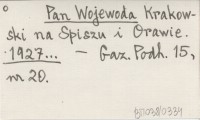 Pan Wojewoda Krakow-
ski na Spiszu i Orawie.
1927... — Gaz. Podh. 15,
nr 20.